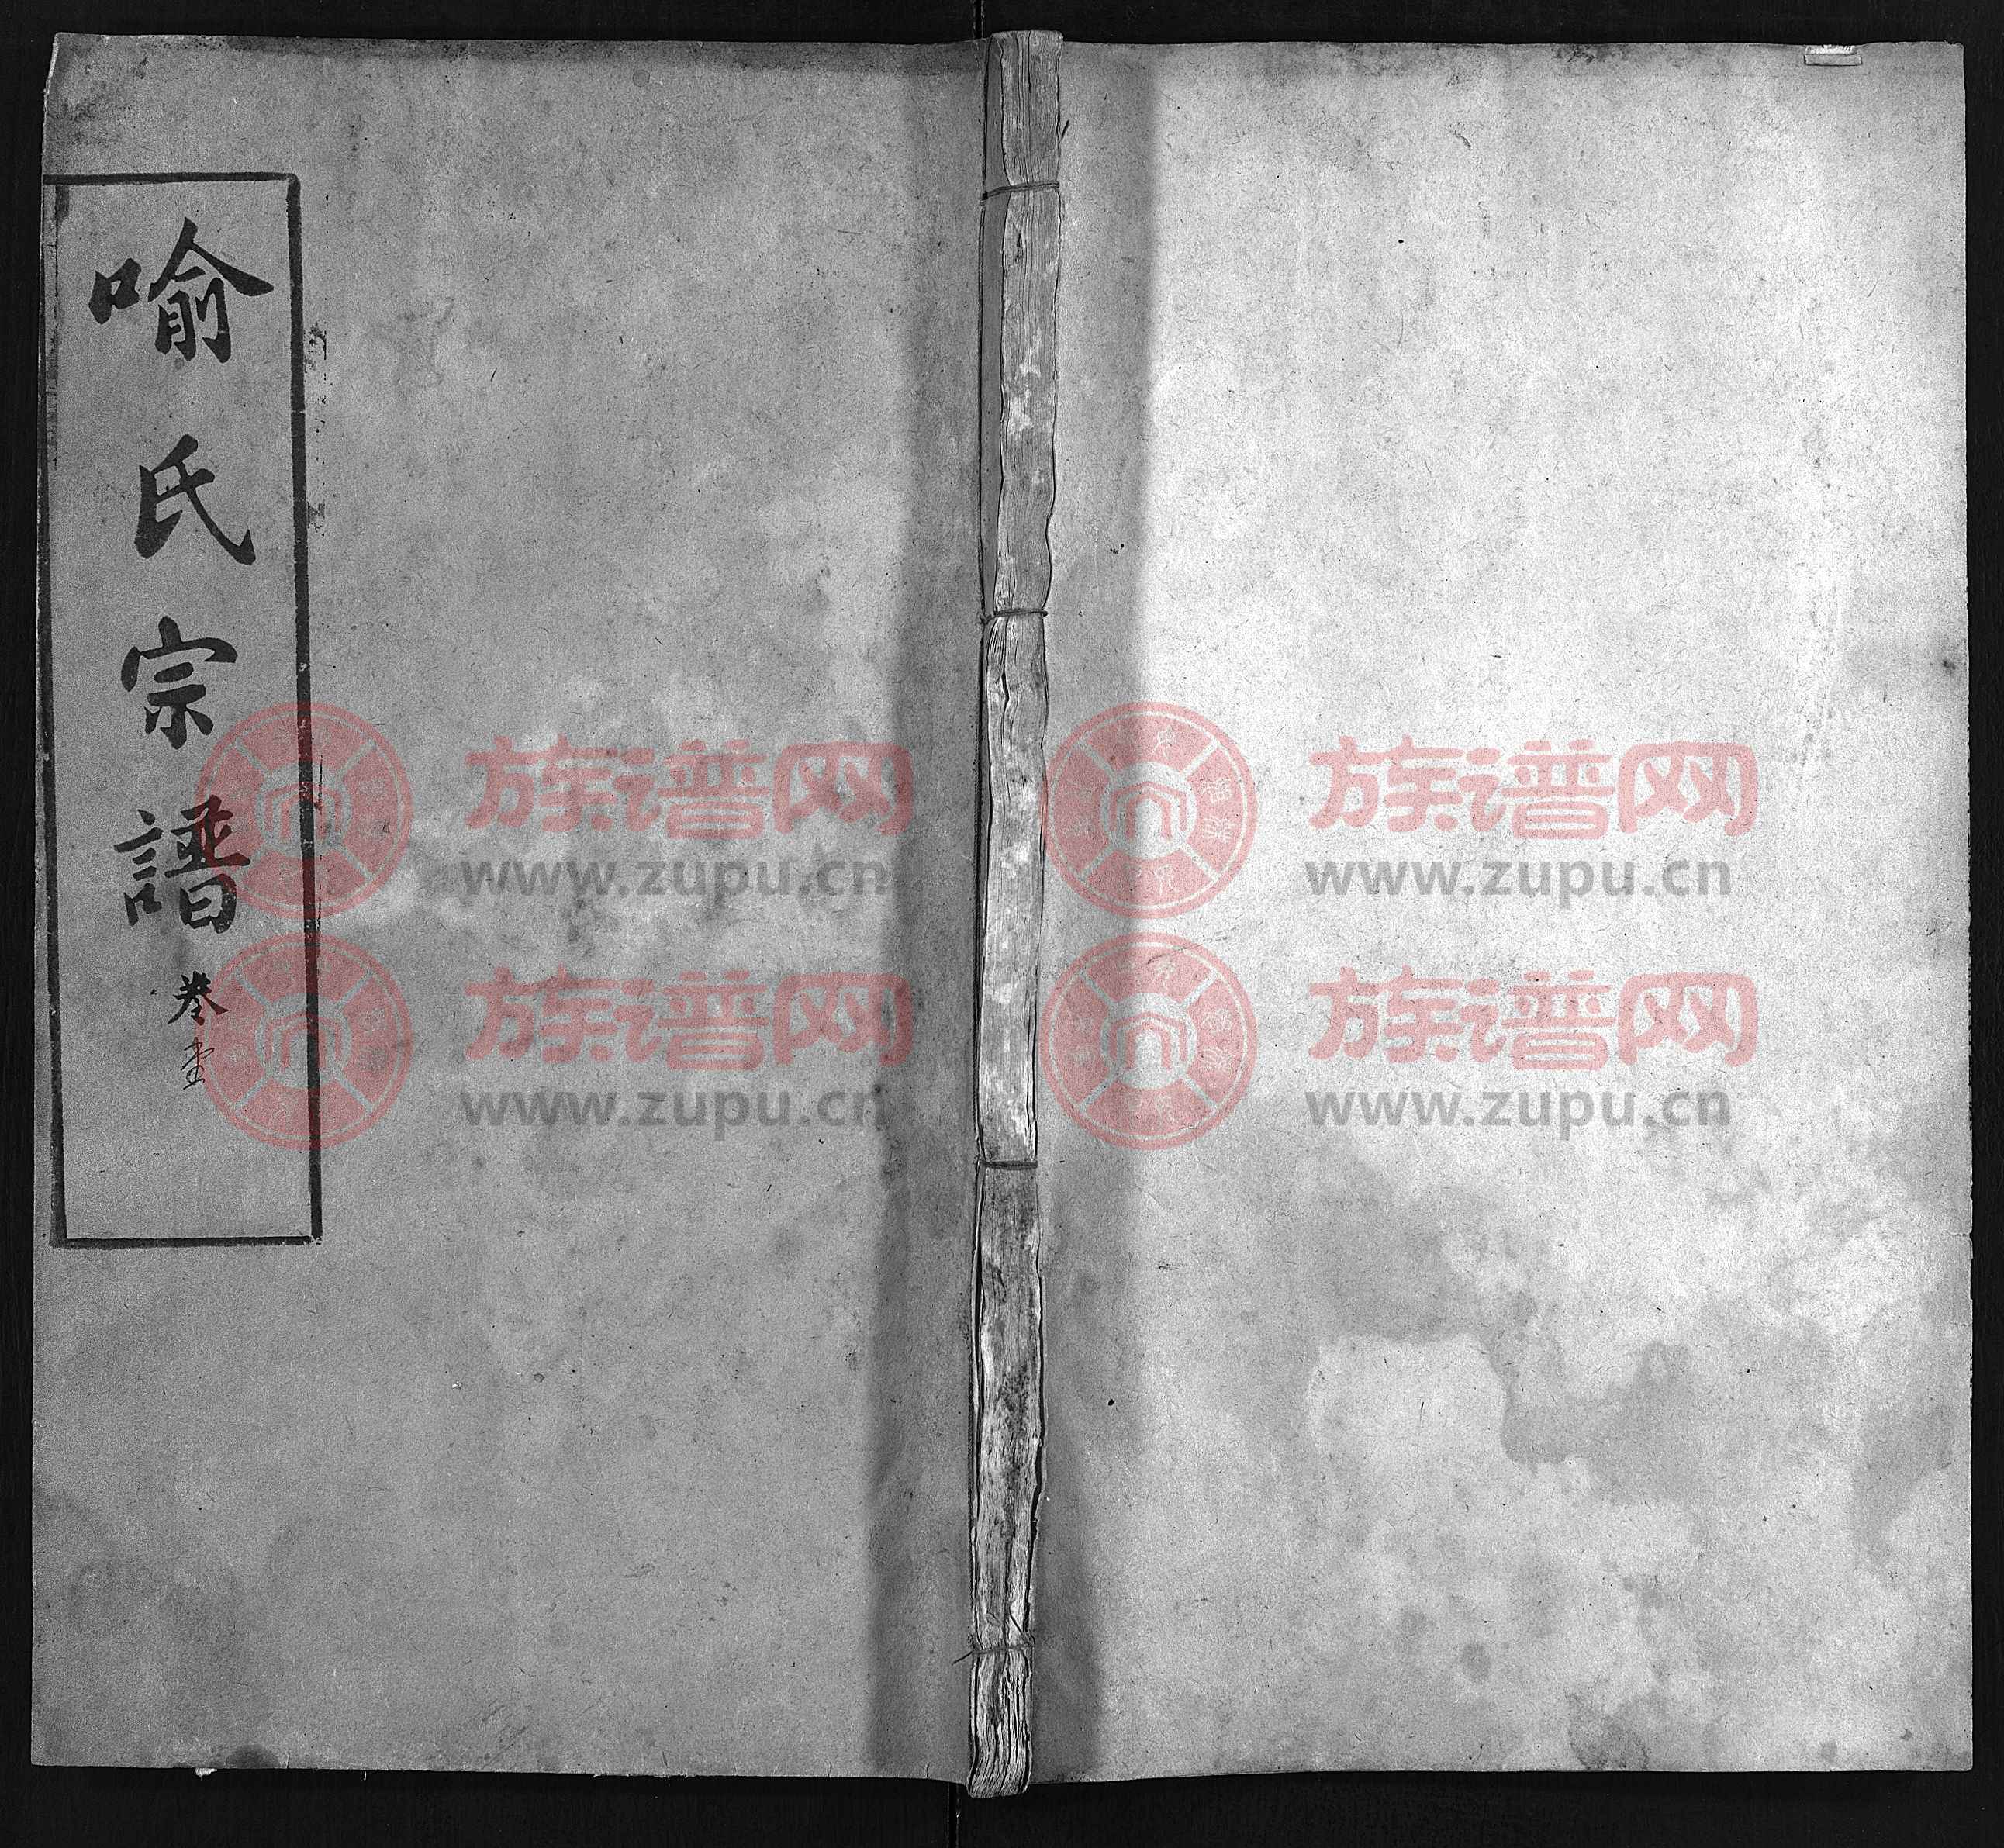 喻氏宗譜
卷壹
族谱网
www.zupu.cn
族谱网
www.zupu.cn
族谱网
www.zupu.cn
族谱网
www.zupu.cn